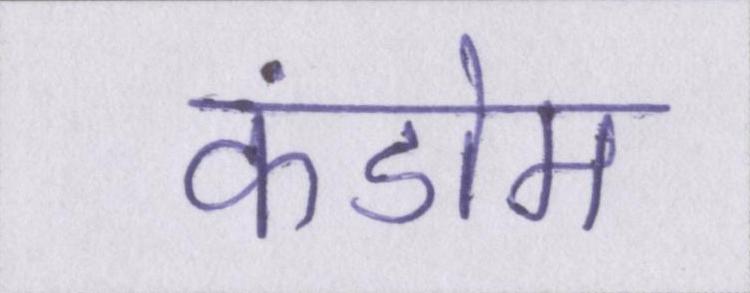 कंडोम